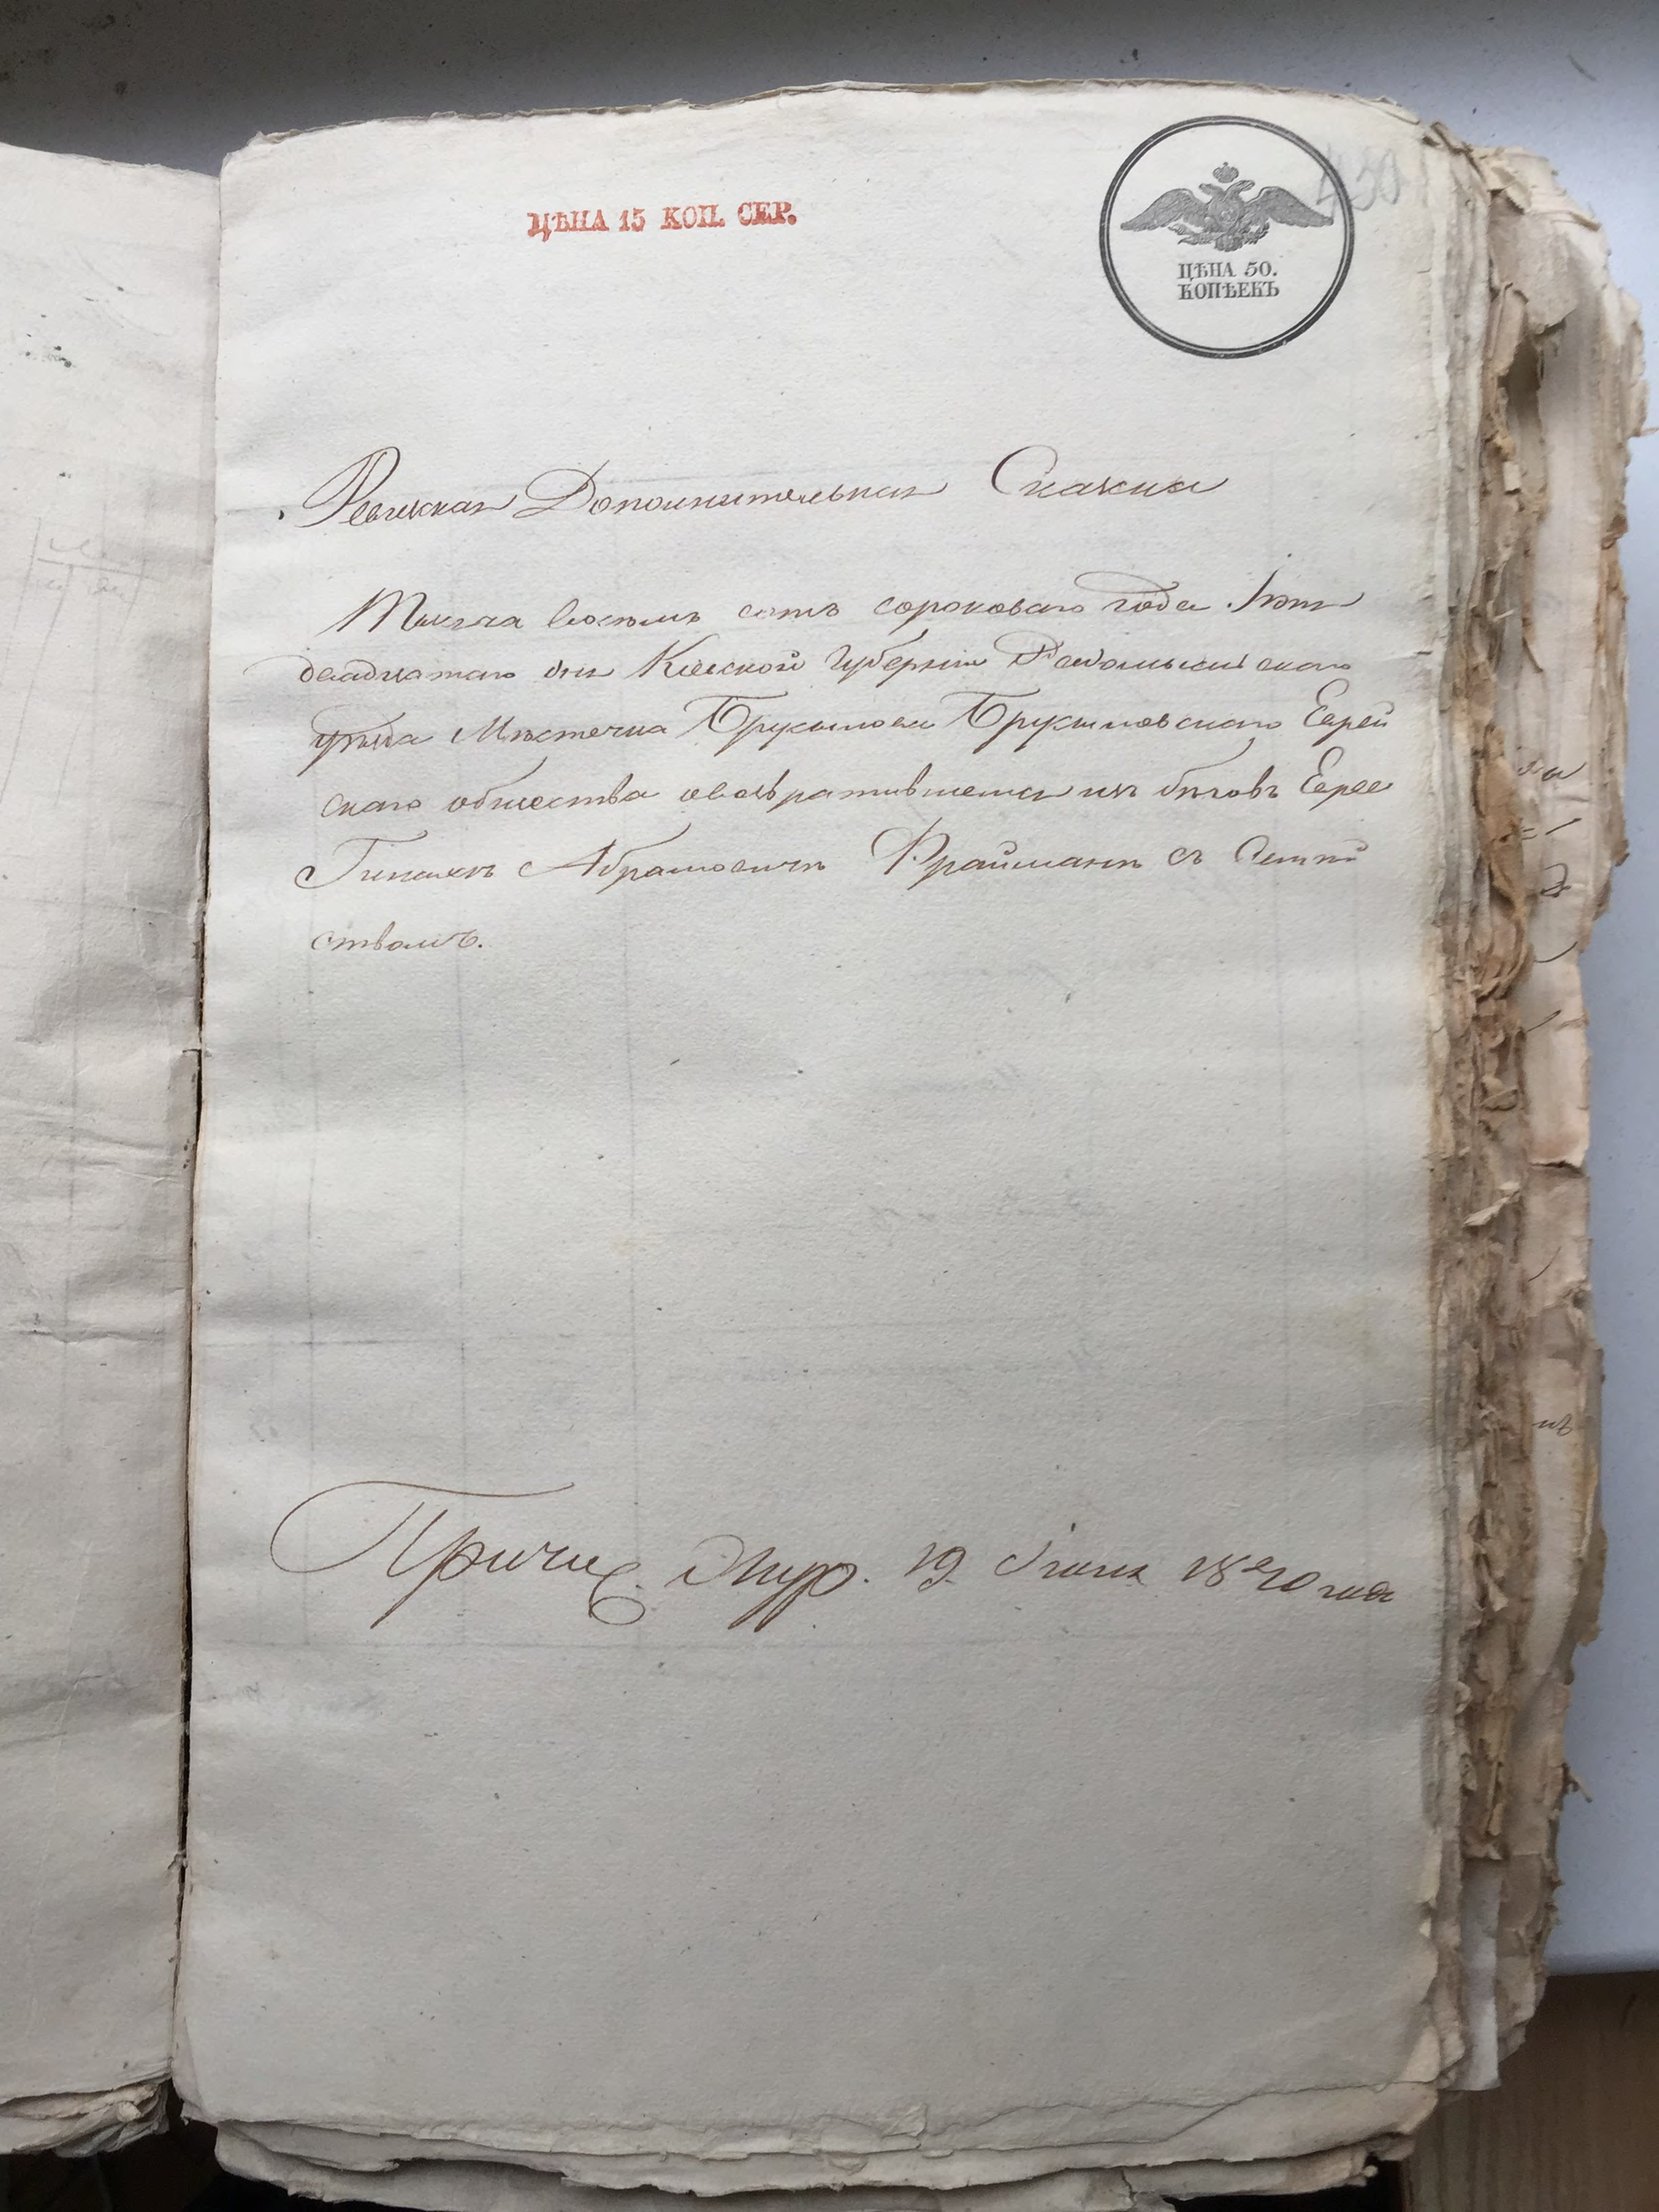 ЦѢНА 15 КОП. СЕР.
430
ЦѢНА 50.
КОПѢЕКЪ
Ревижская Дополнительная Сказка
Тысяча восемь сотъ сороковаго года Іюня
двадцатаго дня Кіевской Губерніи Радомысльскаго
уѣзда Мѣстечка Брусилова Брусиловскаго Еврей
скаго общества овозвратившемся изъ бѣговъ Еврее
Абрамовичѣ Фрайманѣ съ Семей
ствомъ.
19 Іюня 1840 года